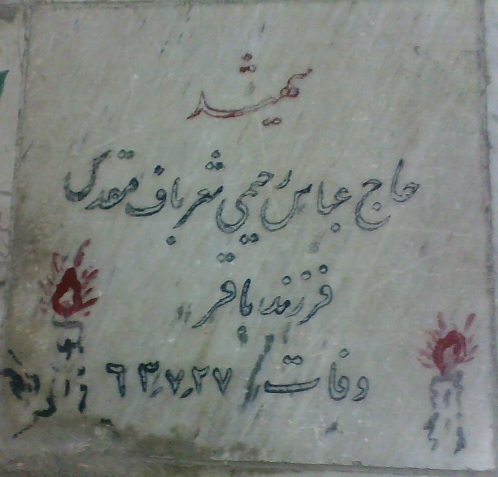 شهید
حاج عباس رحیمی شعرباف مقدس
فرزند باقر
وفات / ۶۳٫۷٫۲۷